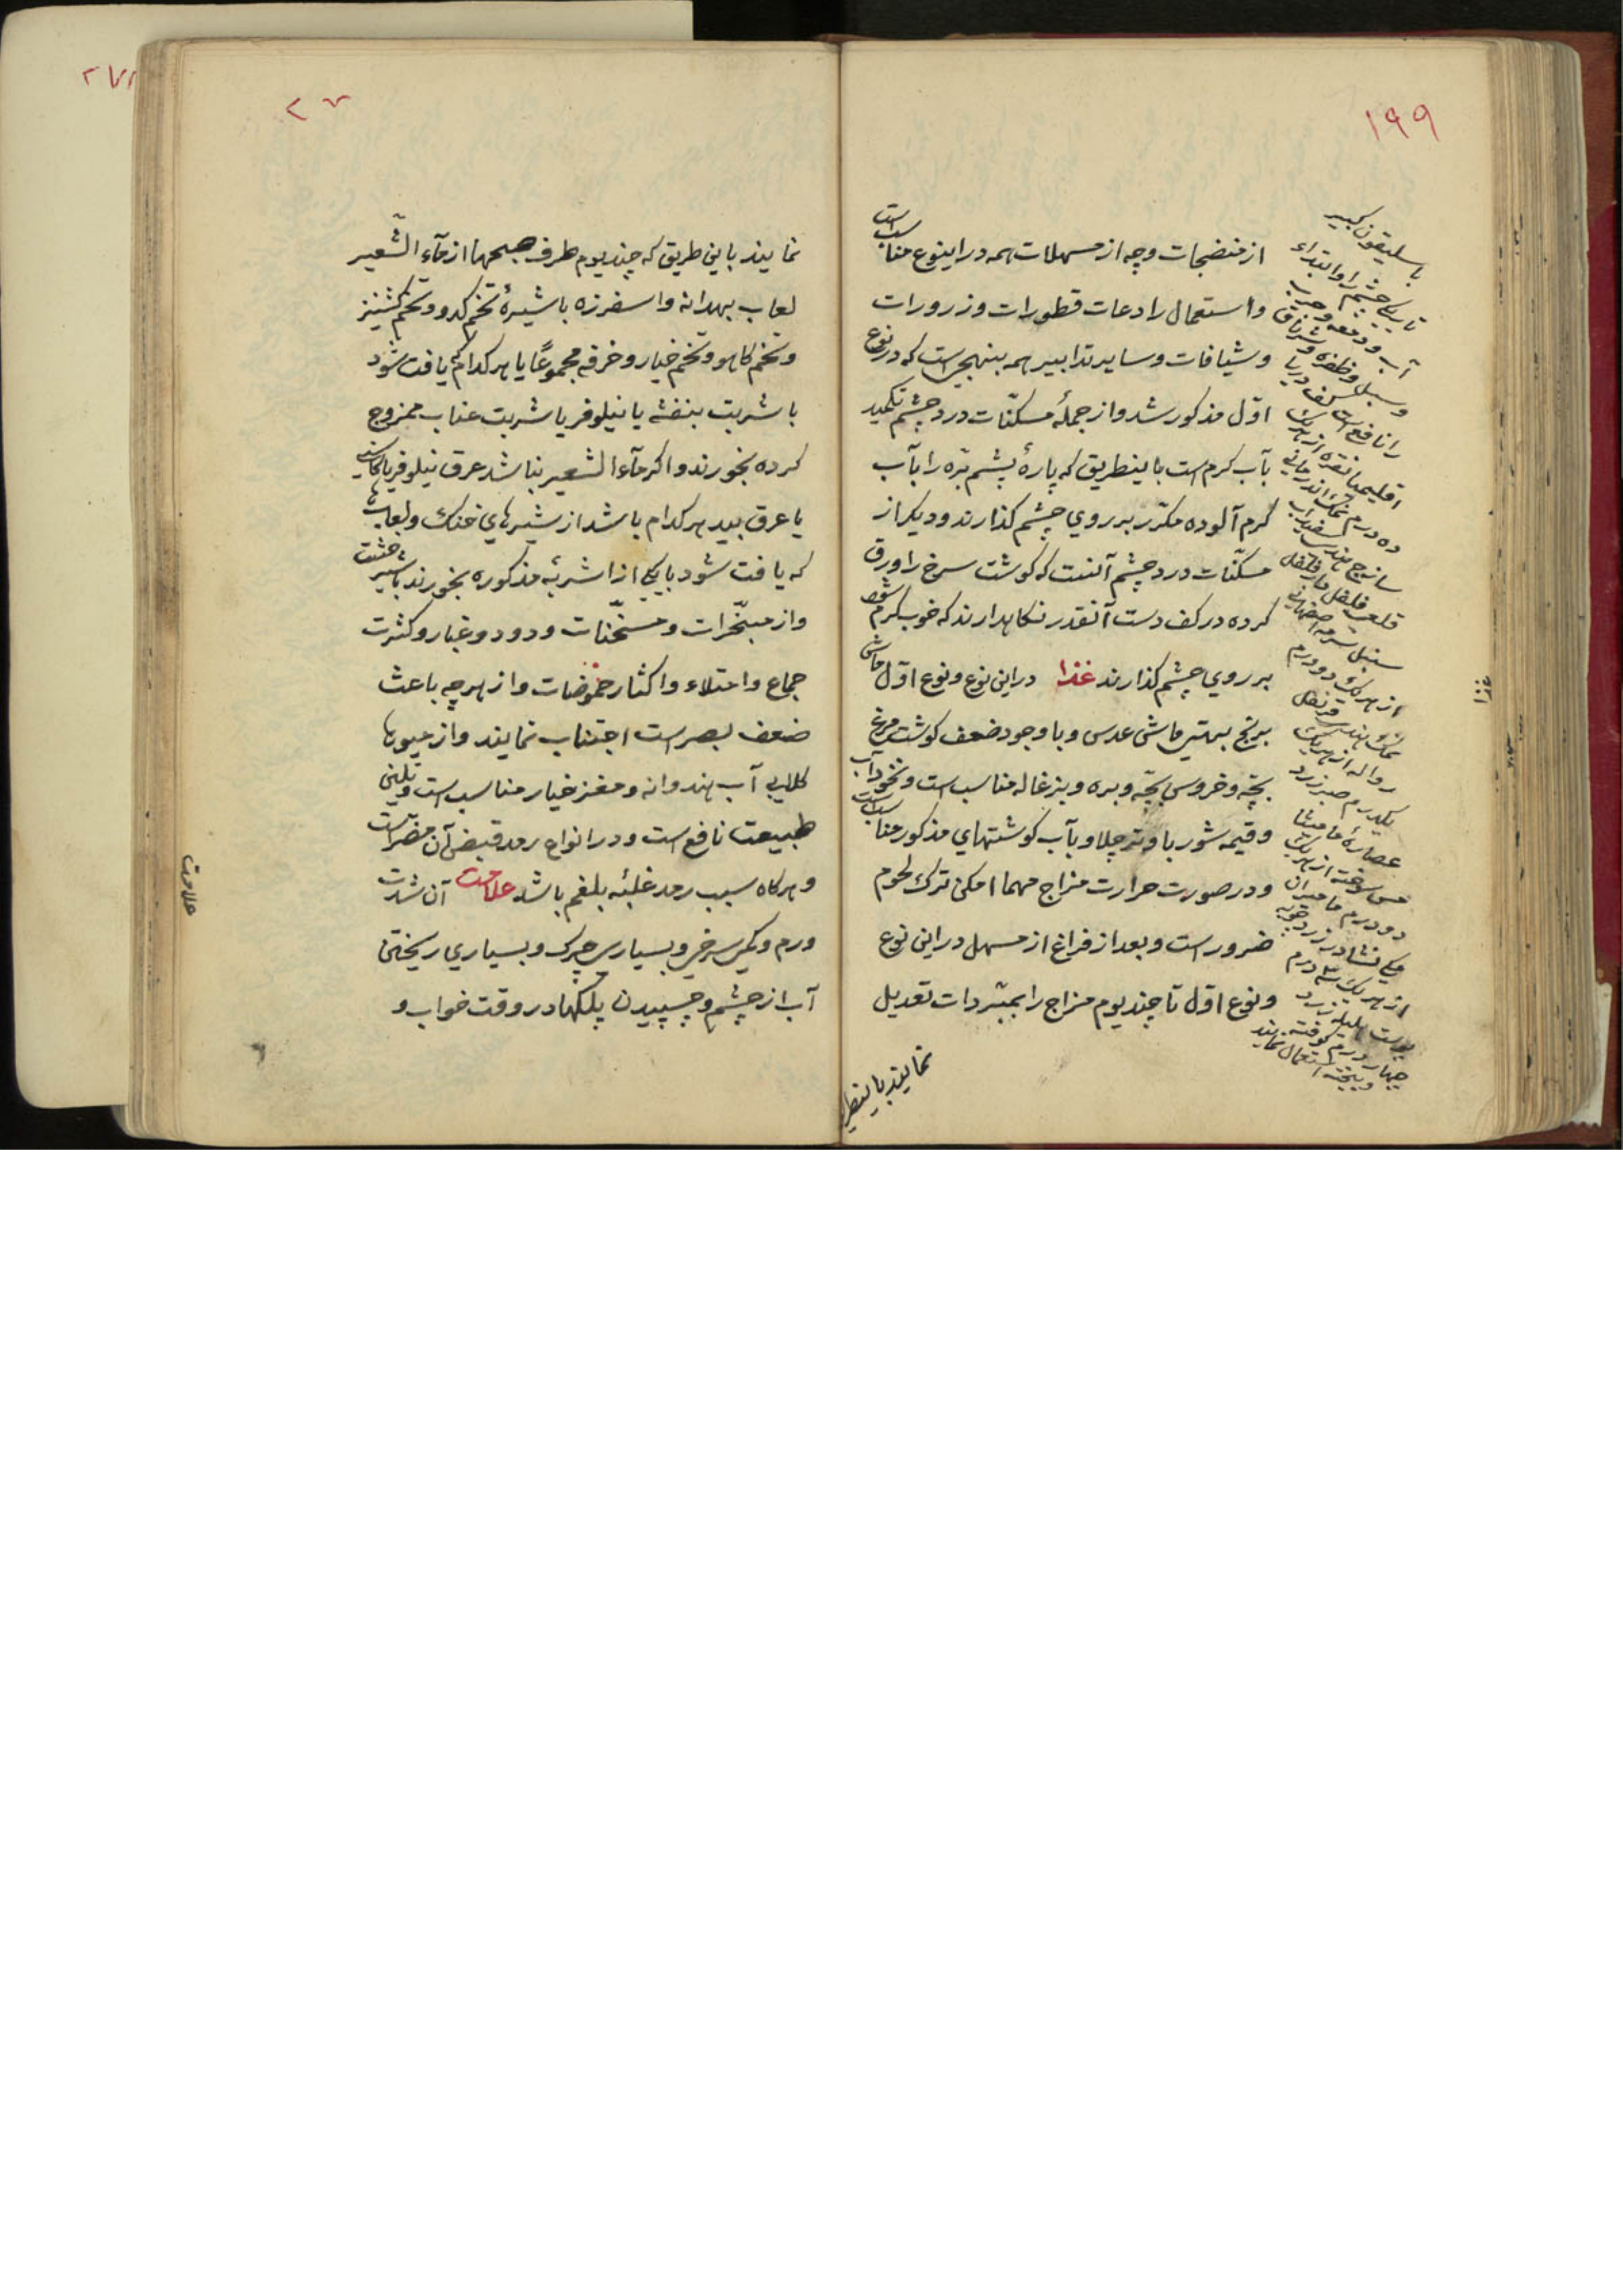 ۱۹۹
از منضجات وچه از مسهلات همه در اینوع مناسب است
واستعمال رادعات قطورات وزرورات
وشیافات وسایر تدابیر همه بنهجیست که در نوع
اوّل مذکور شد واز جملهٔ مسکنّات درد چشم تکمید
بآب کرم است باینطریق که پارهٔ پشم برّه را بآب
کرم آلوده مکرّر بر روي چشم کذارند ودیکر از
مسکنّات درد چشم آنست که کوشت سرخ را ورق
کرده در کف دست آنقدر نکاهدارند که خوب کرم شود
بر روي چشم کذارند غذا در این نوع ونوع اوّل ماش
برنج بهتر ماش عدس وبا وجود ضعف کوشت مرغ
بچّه وخروس بچّه وبره وبزغاله مناسب است ونخود آب
وقیمه شوربا وتر چلاو بآب کوشتهاي مذکور مناسب است
ودر صورت حرارت مزاج مهما امکن ترك لحوم
ضرور است وبعد از فراغ از مسهل در این نوع
ونوع اوّل تا چند یوم مزاج را بمبرّدات تعدیل
نمایند باینطریق
باسلیقون کبیر
تاریکی چشم را وابتداء
آب ودمعه وجرب
وسبل وظفره وشرناق
را نافع است کف دریا
اقلیمیا نقره از هریك
ده درم نمك اندرانی
ساذج هندی سفیداب
قلعی فلفل دارفلفل
سنبل سرمه اصفهانی
از هریك دو درم
نمك هندی قرنفل
از هریك
یکدرم صبر زرد
عصارهٔ مامیثا
مس سوخته از هریك
دو درم مامیران
نشادر زردچوبه
از هریك سه درم
پوست هلیله زرد
چهار درم کوفته
وبیخته استعمال نمایند
غذا
نمایند باین طریق که چند یوم طرف صبحها از مآء الشّعیر
لعاب بهدانه واسفرزه باشیرهٔ تخم کدو وتخم کشنیز
وتخم کاهو وتخم خیار وخرفه مجموعًا یا هر کدام یافت شود
با شربت بنفشه یا نیلوفر یا شربت عناب ممزوج
کرده بخورند واکر مآء الشعیر نباشد عرق نیلوفر یا کاسنی
یا عرق بید هر کدام باشد از شیرهاي خنك ولعابها
که یافت شود بایکی از اشربهٔ مذکوره بخورند باشیر خشت
واز مبخّرات ومسخّنات ودود وغبار وکثرت
جماع وامتلاء واکثار حموضات واز هرچه باعث
ضعف بصر است اجتناب نمایند واز میوها
کلابی آب هندوانه ومغز خیار مناسب است وتلیین
طبیعت نافع است ودر انواع رمد قبض آن مضرّ است
وهر کاه سبب رمد غلبهٔ بلغم باشد علامت آن شدت
ورم وکمی سرخی وبسیاری چرك وبسیاري ریختن
آب از چشم وچسپیدن پلکها در وقت خواب و
علامت